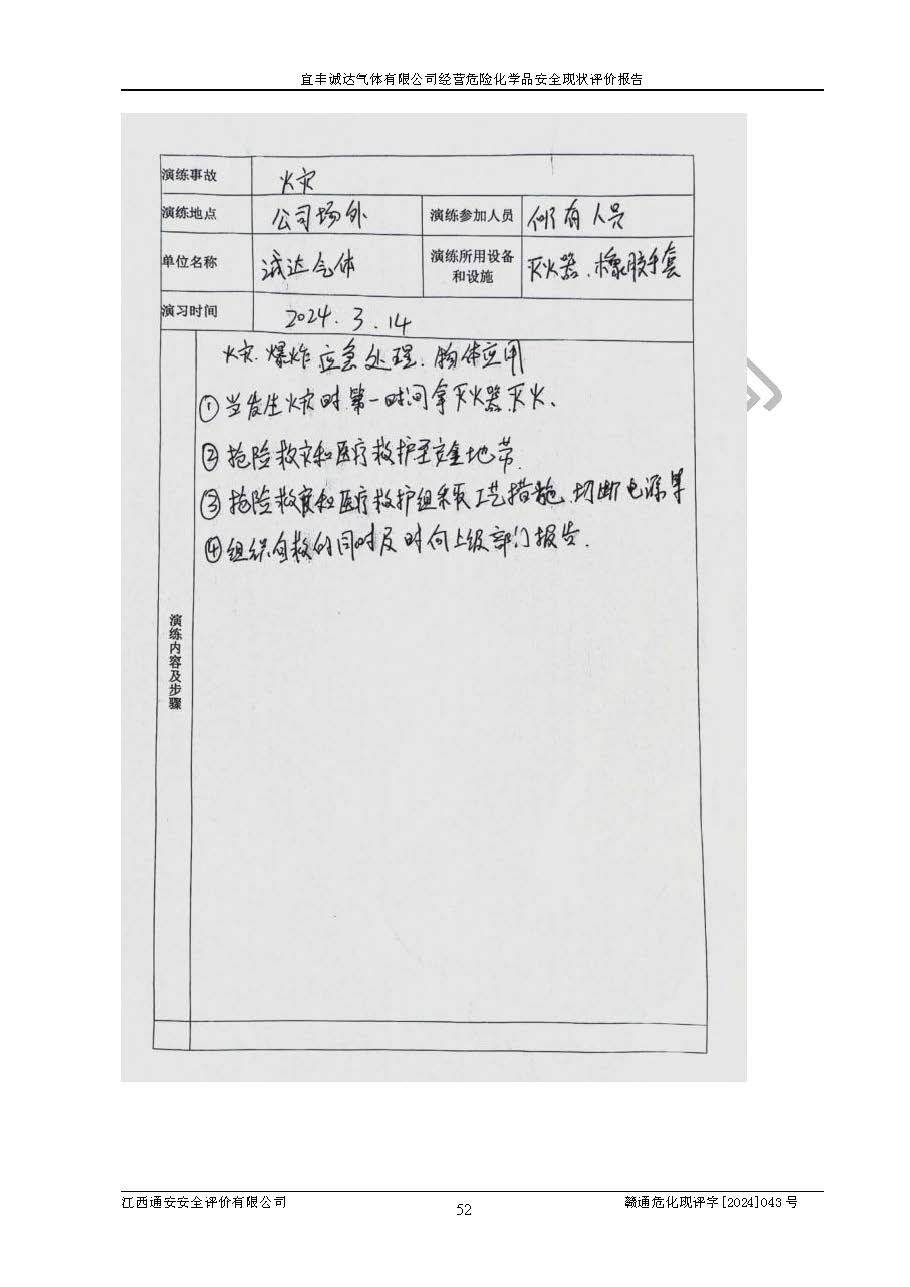 宜丰诚达气体有限公司经营危险化学品安全现状评价报告
演练事故 火灾
演练地点 公司场外 演练参加人员 所有人员
单位名称 诚达气体 演练所用设备和设施 灭火器、橡胶手套
演习时间 2024.3.14
演练内容及步骤
火灾、爆炸应急处理、物体应用
①当发生火灾时第一时间拿灭火器灭火、
②抢险救灾和医疗救护至安全地带.
③抢险救灾和医疗救护组采取工艺措施、切断电源等
④组织自救的同时及时向上级部门报告.
江西通安安全评价有限公司
52
赣通危化现评字[2024]043号